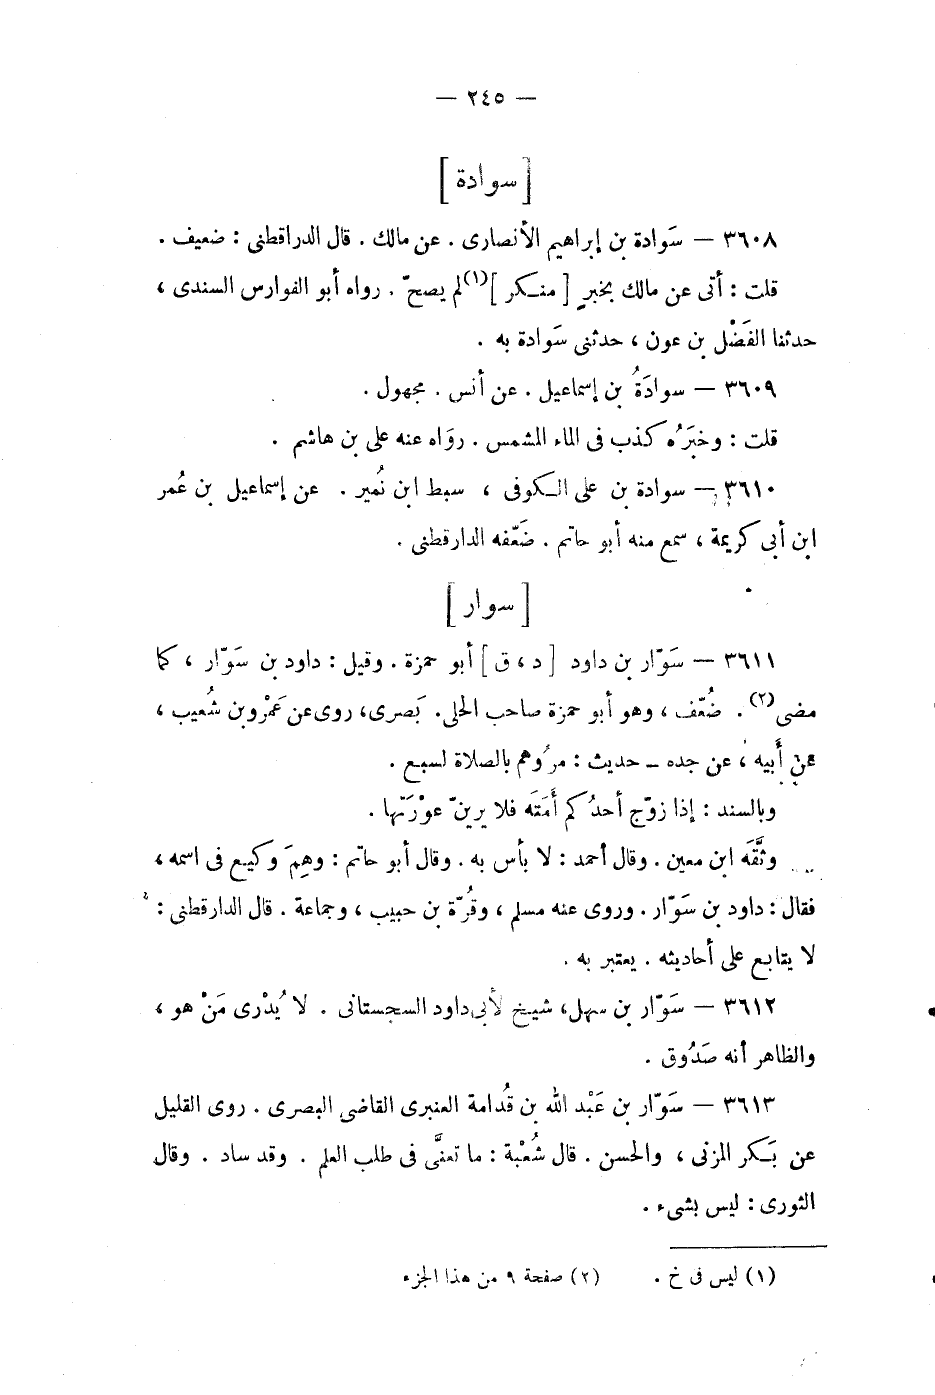 — ٢٤٥ —
[ سوادة ]
٣٦٠٨ — سَوادة بن إبراهيم الأنصارى . عن مالك . قال الدراقطنى : ضعيف .
قلت : أتى عن مالك بخبرٍ [ منكر ](١) لم يصحّ . رواه أبو الفوارس السندى ،
حدثنا الفَضْل بن عون ، حدثنى سَوادة به .
٣٦٠٩ — سوادَةُ بن إسماعيل . عن أنس . مجهول .
قلت : وخبَرُه كذب فى الماء المشمس . روَاه عنه على بن هاشم .
٣٦١٠ — سوادة بن على الكوفى ، سبط ابن نُمير . عن إسماعيل بن عُمر
ابن أبى كريمة ، سمع منه أبو حاتم . ضَعّفه الدارقطنى .
[ سوار ]
٣٦١١ — سَوّار بن داود [ د ، ق ] أبو حمزة . وقيل : داود بن سَوّار ، كما
مضى(٢) . ضُعّف ، وهو أبو حمزة صاحب الحلى . بَصرى ، روى عن عَمْرو بن شُعيب ،
عن أَبيه ، عن جده — حديث : مرُوهم بالصلاة لسبع .
وبالسند : إذا زوّج أحدُكم أَمَتَه فلا يرينّ عوْرَتَها .
وثَّقَه ابن معين . وقال أحمد : لا بأس به . وقال أبو حاتم : وهِمَ وكيع فى اسمه ،
فقال : داود بن سَوّار . وروى عنه مسلم ، وقُرّة بن حبيب ، وجماعة . قال الدارقطنى :
لا يتابع على أحاديثه . يعتبر به .
٣٦١٢ — سَوّار بن سهل، شيخ لأبى داود السجستانى . لا يُدْرى مَنْ هو ،
والظاهر أنه صَدُوق .
٣٦١٣ — سَوّار بن عَبْد الله بن قُدامة العنبرى القاضى البصرى . روى القليل
عن بَكر المزنى ، والحسن . قال شُعْبة : ما تعنَّى فى طلب العلم . وقد ساد . وقال
الثورى : ليس بشىء .
(١) ليس فى خ . (٢) صفحة ٩ من هذا الجزء